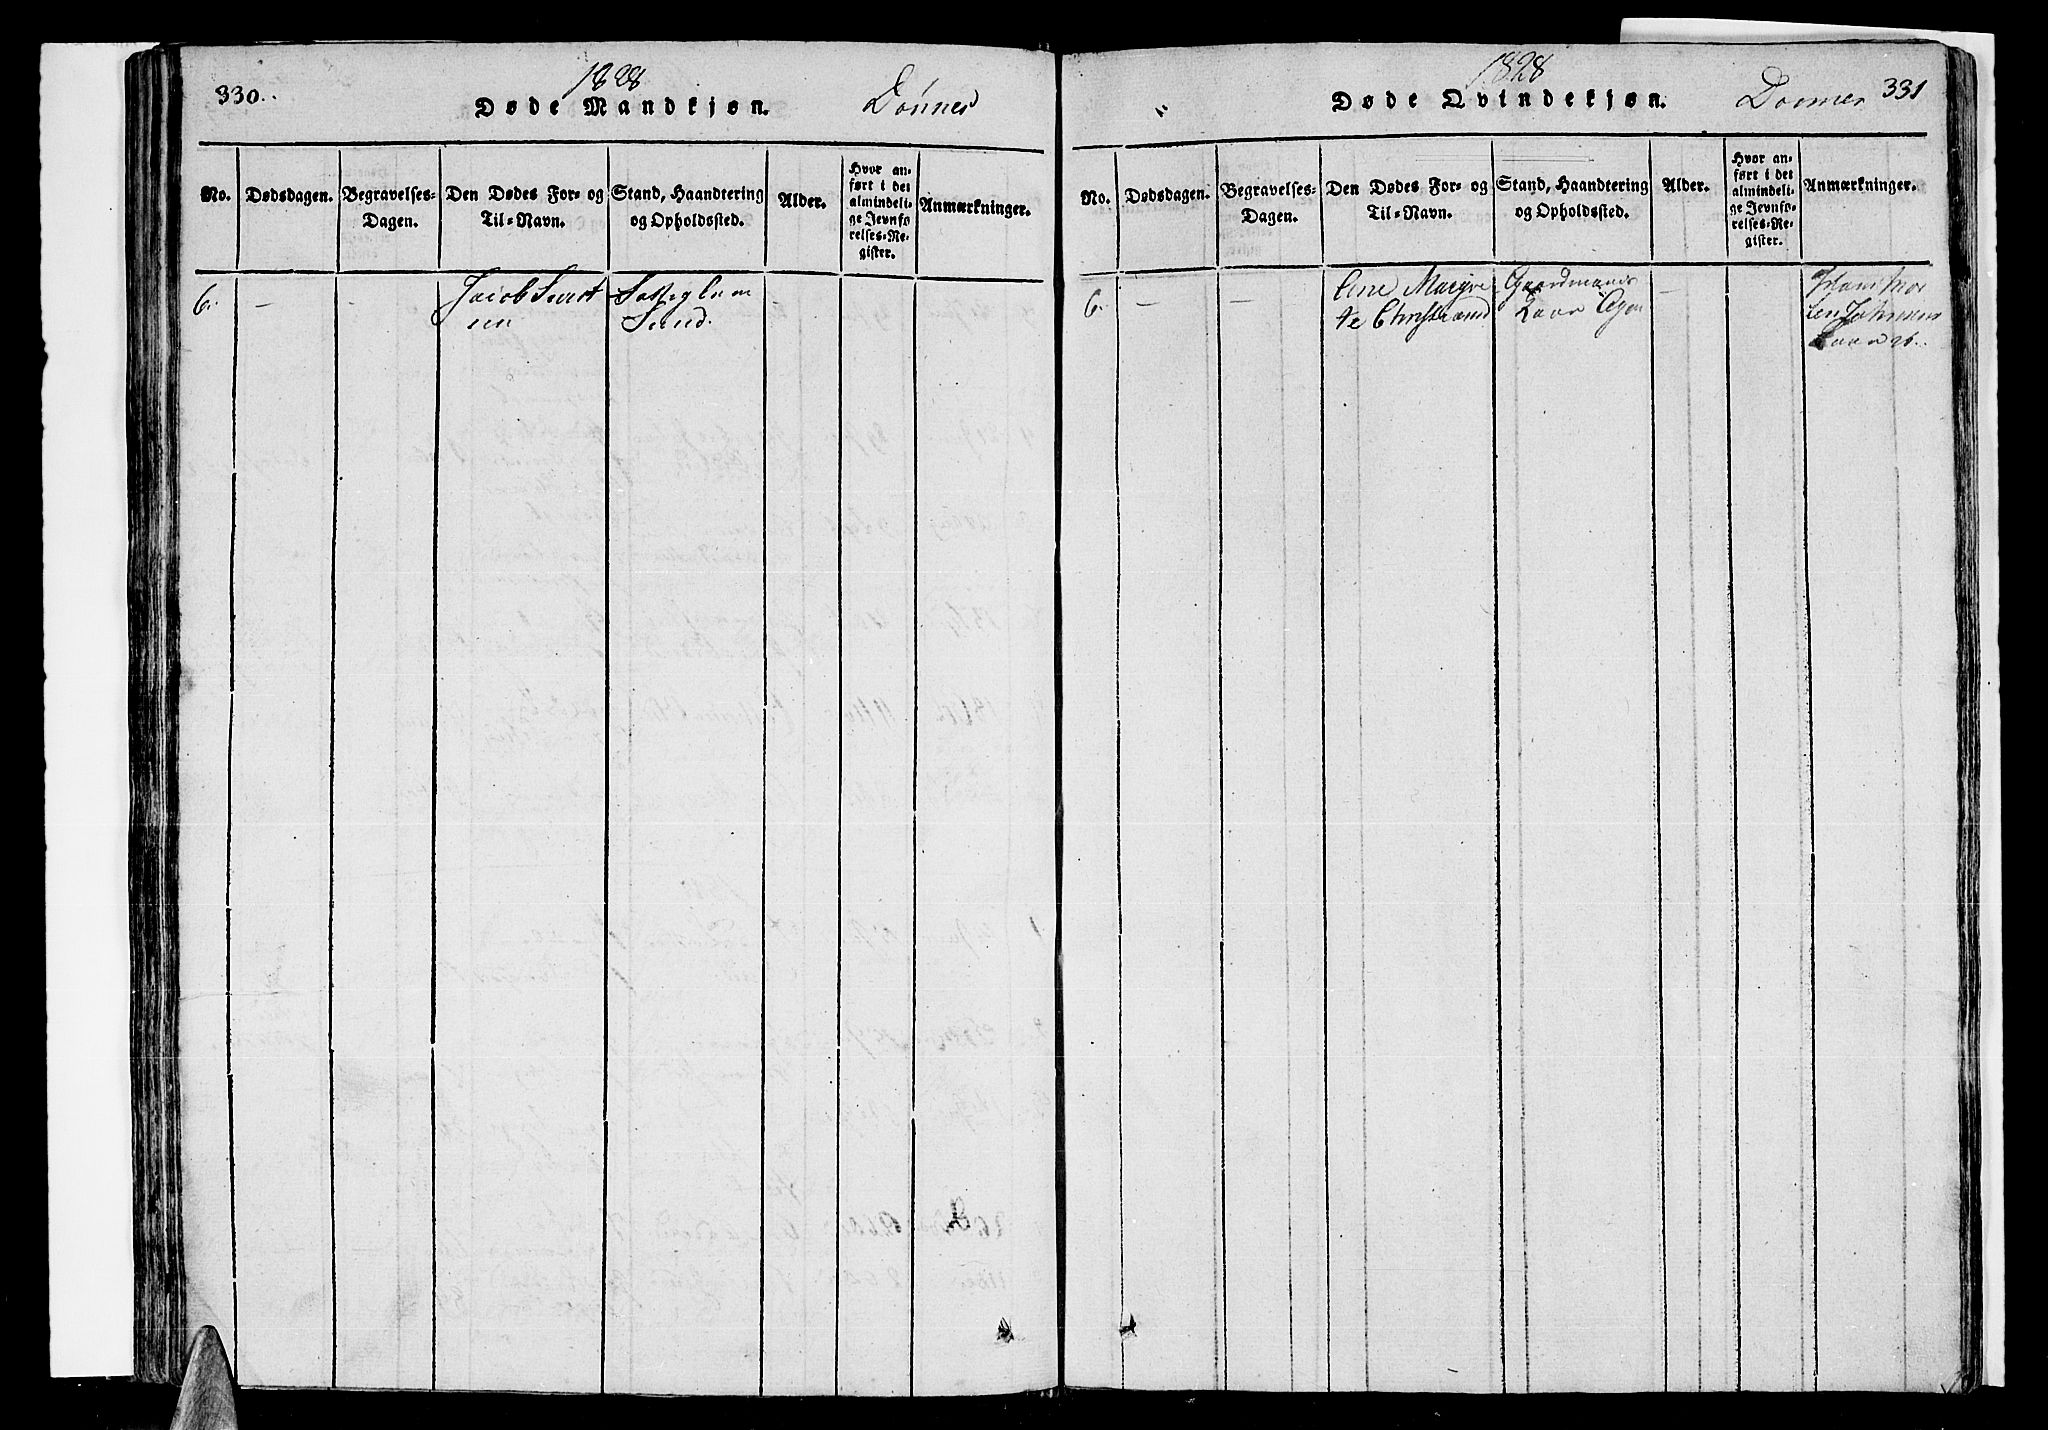 330.
1828
Døde Mandkjøn.
Dønnes
No.
Dødsdagen.
Begravelses-
Dagen.
Den Dødes For- og
Til-Navn.
Stand, Haandtering
og Opholdssted.
Alder.
Hvor an-
ført i det
almindeli-
ge Jevnfø
relses-Re-
gister.
Anmærkninger.
6.
—
-
Jacob
Sund.
1828
Døde Qvindekjøn.
Dønnes
331
No.
Dødsdagen.
Begravelses-
Dagen.
Den Dødes For- og
Til-Navn.
Stand, Haandtering
og Opholdssted.
Alder.
Hvor an-
ført i det
almindeli-
ge Jevnfø-
relses-Re-
gister.
Anmærkninger.
6.
—
—
Ane Margre
te
Gaardmands
—